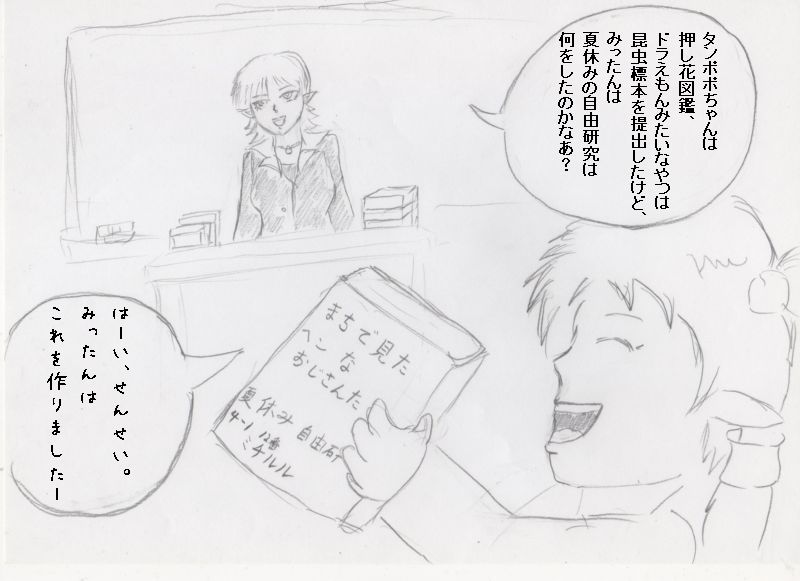 タンポポちゃんは
押し花図鑑、
ドラえもんみたいなやつは
昆虫標本を提出したけど、
みったんは
夏休みの自由研究は
何をしたのかなあ？
まちで見た
ヘンな
おじさんた
夏休み 自由研
4-1 12番
ミチルル
はーい、せんせい。
みったんは
これを作りましたー